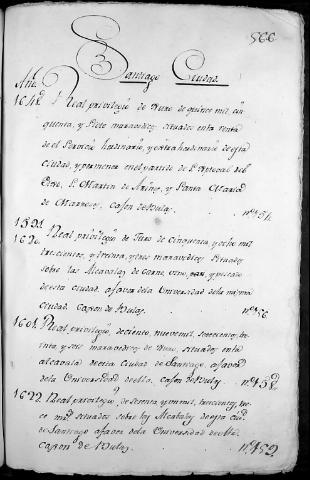 566
Santiago Ciudad.
Año
1642. Real privilegio de Juro de quince mil, cin
quenta, y siete maravedises situados en la renta
de el Servicio hordinario, y extrahordinario de esta
Ciudad, y
S. Martin de y Santa Maria
de Cajon de Bulas. nº 454.
1591.
1620. Real privilegio de Juro de Cinquenta y ocho mil
trescientos, y treinta, y tres maravedises situados
sobre las Alcavalas de Carne, vino, y pescado
de esta ciudad a favor de la Universidad de la misma
Ciudad. Cajon de Bulas. nº 456
1601. Real privilegio, de ciento, nueve mil, setecientos, tre
inta, y seis maravedises de Juro, situados en la
alcavala de esta Ciudad de Santiago, a favor
de la Universidad de ella. Cajon de Bulas nº 458.
1622. Real privilegio, de setenta, y un mil, trescientos, tre
ce mrs situados sobre las Alcabalas de esta ciudad
de Santiago a favor de la Universidad de ella.
Cajon de Bulas nº 459.